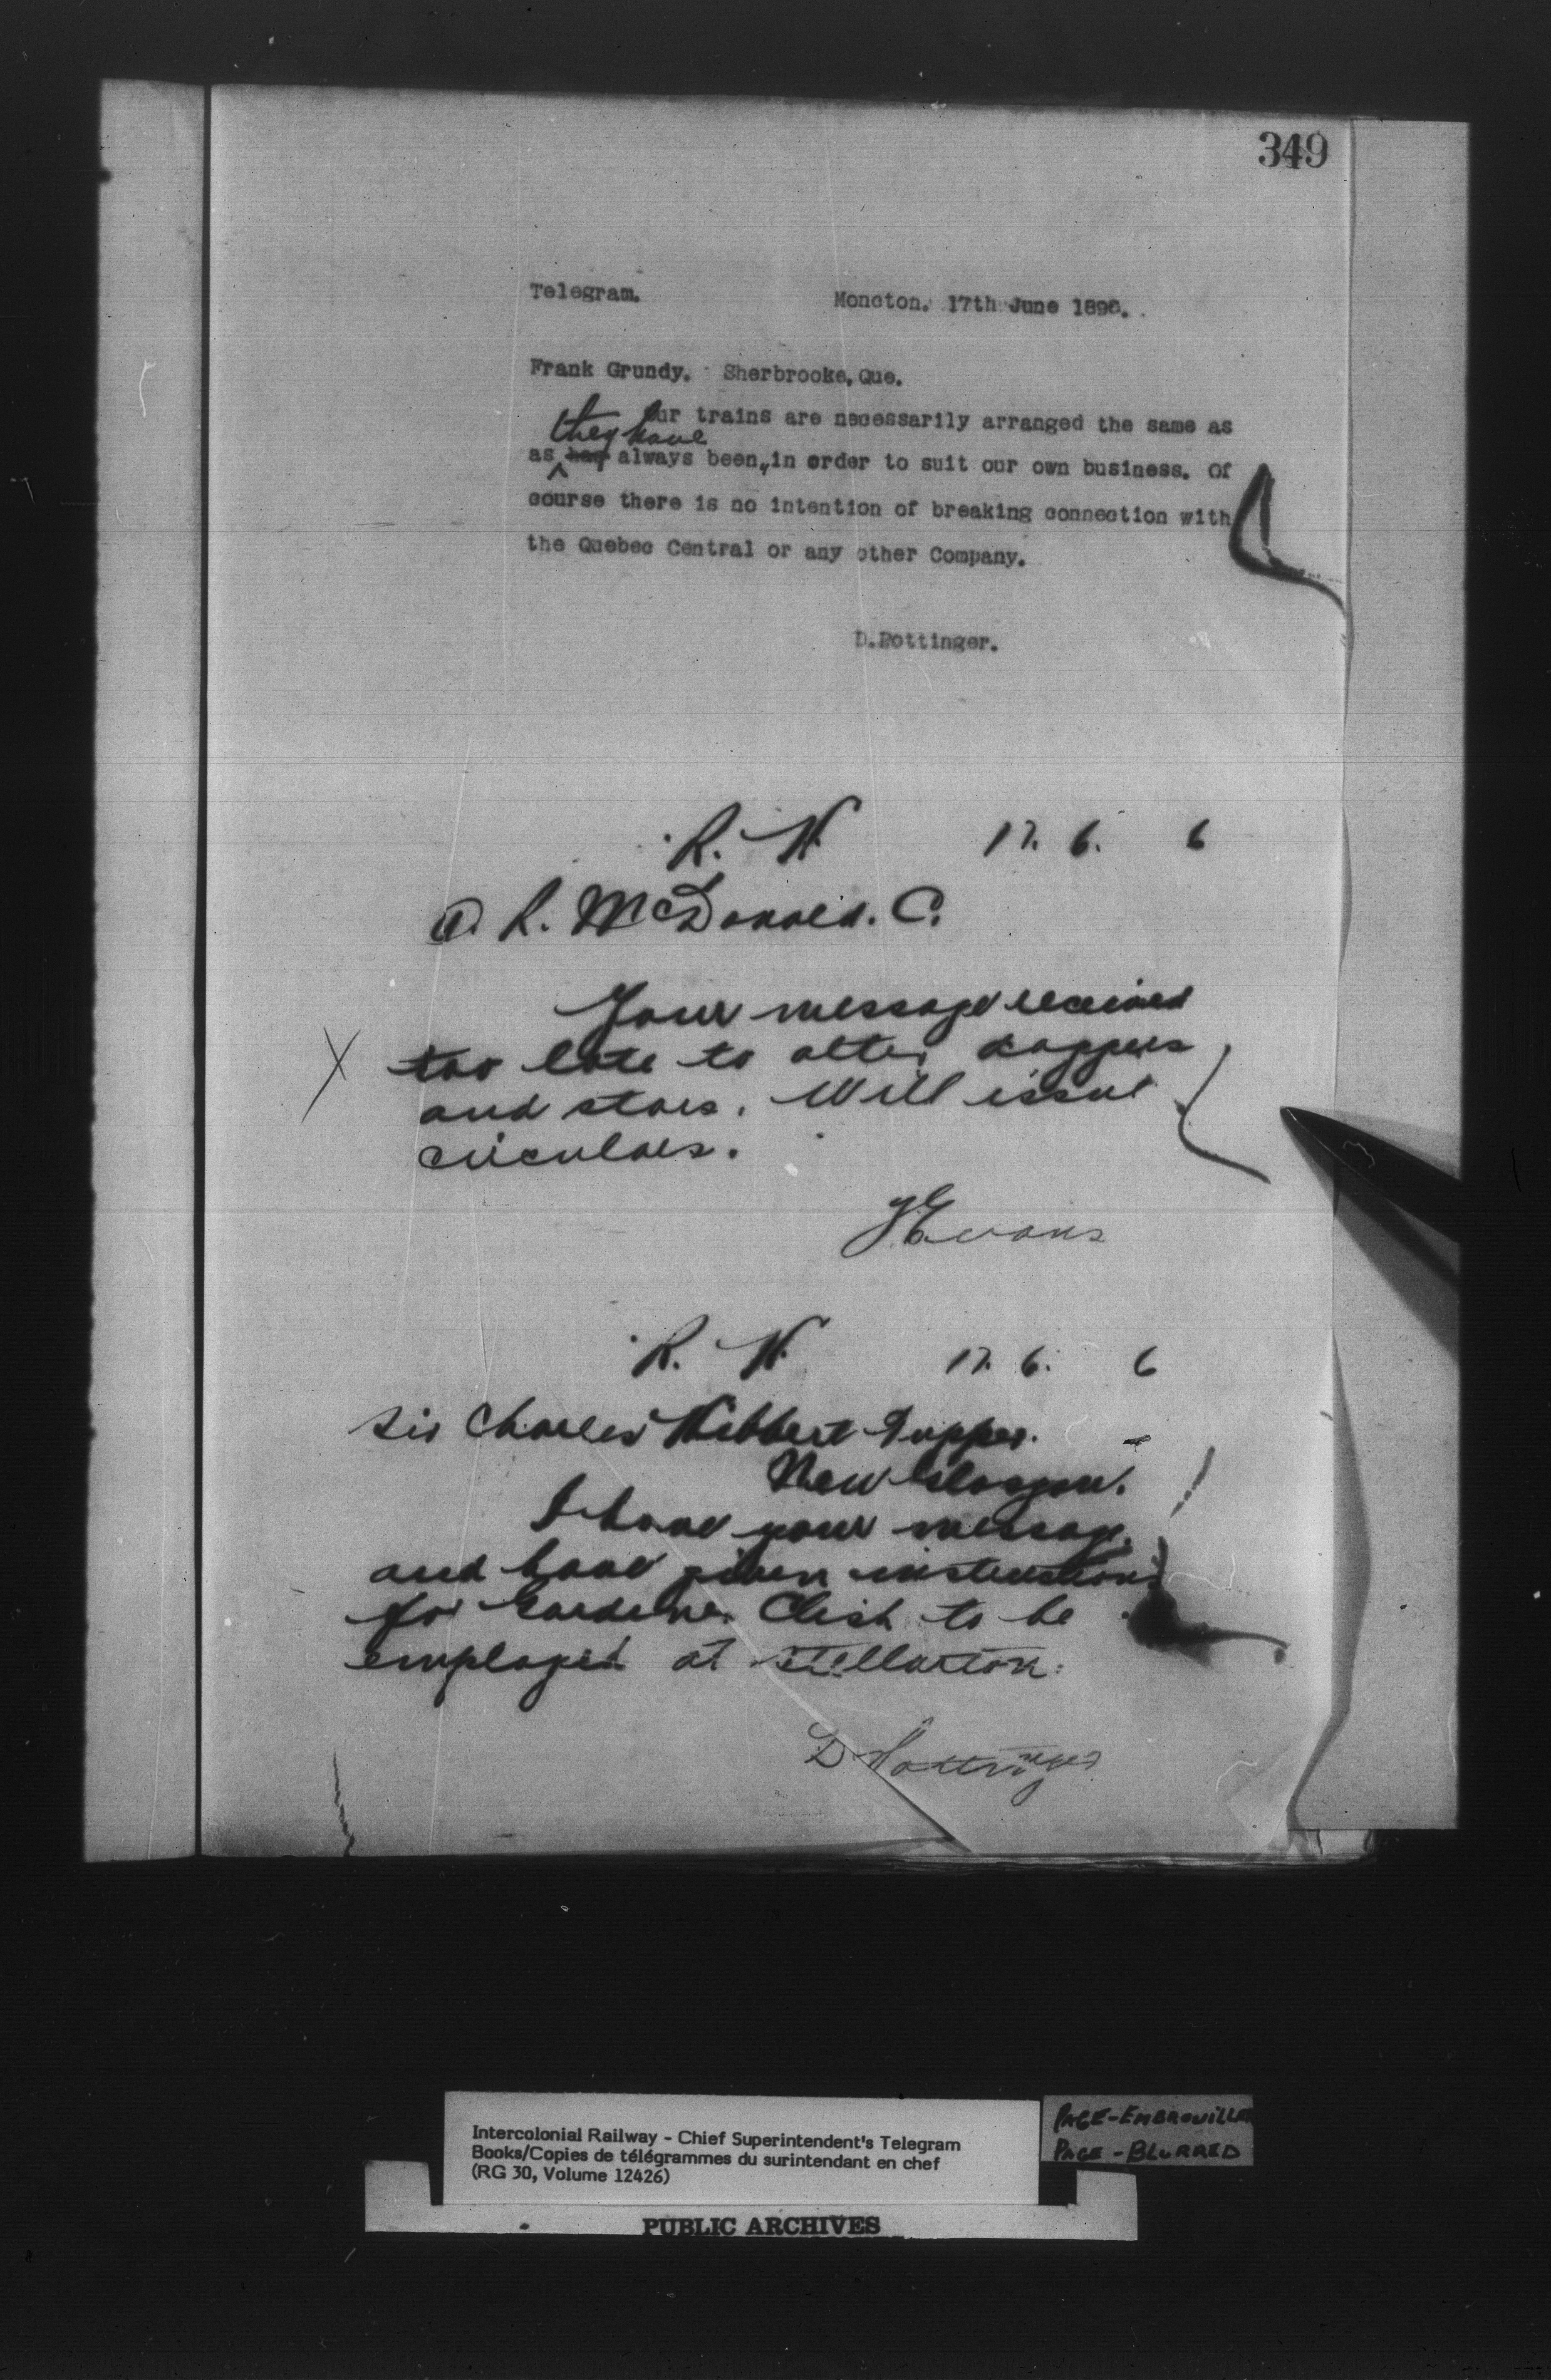 349
Telegram. Moncton. 17th June 1896.
Frank Grundy. Sherbrooke, Que.
Our trains are necessarily arranged the same as
they have
as has always been, in order to suit our own business. Of
course there is no intention of breaking connection with
the Quebec Central or any other Company.
D. Pottinger.
R. W 17. 6. 6
A. R. McDonald. C.
Your message received
too late to alter daggers
and stars. Will issue
circulars.
J Evans
R. W. 17. 6. 6
Sir Charles Hibbert Tupper.
New Glasgow.
I have your message
and have given instructions
for Gardener Clish to be
employed at Stellarton.
D Pottinger
Intercolonial Railway - Chief Superintendent's Telegram
Books/Copies de télégrammes du surintendant en chef
(RG 30, Volume 12426)
PAGE-EMBROUILLE
PAGE-BLURRED
PUBLIC ARCHIVES